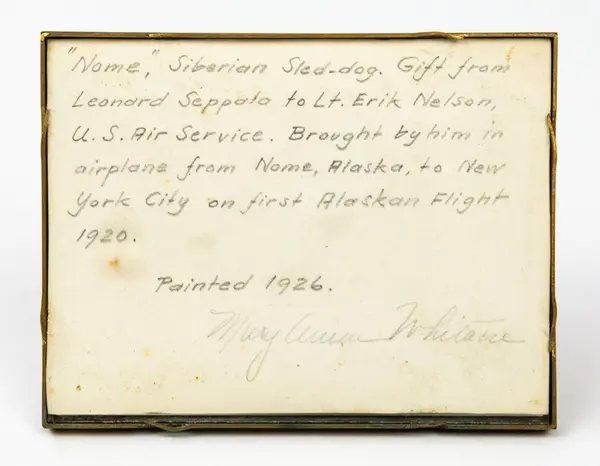 "Nome," Siberian Sled-dog. Gift from
Leonard Seppala to Lt. Erik Nelson,
U.S. Air Service. Brought by him in
airplane from Nome, Alaska, to New
York City on first Alaskan Flight
1920.
Painted 1926.
Mary